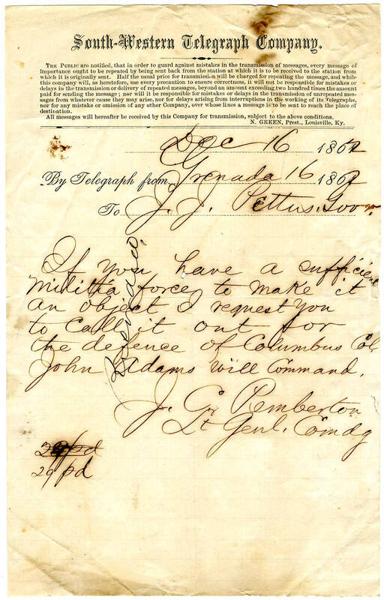 South-Western Telegraph Company.
THE PUBLIC are notified, that in order to guard against mistakes in the transmission of messages, every message of
importance ought to be repeated by being sent back from the station at which it is to be received to the station from
which it is originally sent. Half the usual price for transmission will be charged for repeating the message, and while
this company will, as heretofore, use every precaution to ensure correctness, it will not be responsible for mistakes or
delays in the transmission or delivery of repeated messages, beyond an amount exceeding two hundred times the amount
paid for sending the message; nor will it be responsible for mistakes or delays in the transmission of unrepeated mes-
sages from whatever cause they may arise, nor for delays arising from interruptions in the working of its Telegraphs,
nor for any mistake or omission of any other Company, over whose lines a message is to be sent to reach the place of
destination.
All messages will hereafter be received by this Company for transmission, subject to the above conditions.
N. GREEN, Prest., Louisville, Ky.
Dec 16 1862
By Telegraph from Grenada 16 1862
To J. J. Pettus. Gov.
If you have a sufficient
Militia force to make it
an object I request you
to call it out for
the defence of Columbus Col
John Adams will command.
J. C. Pemberton
Lt Genl. Comdg
29/pd
29/pd